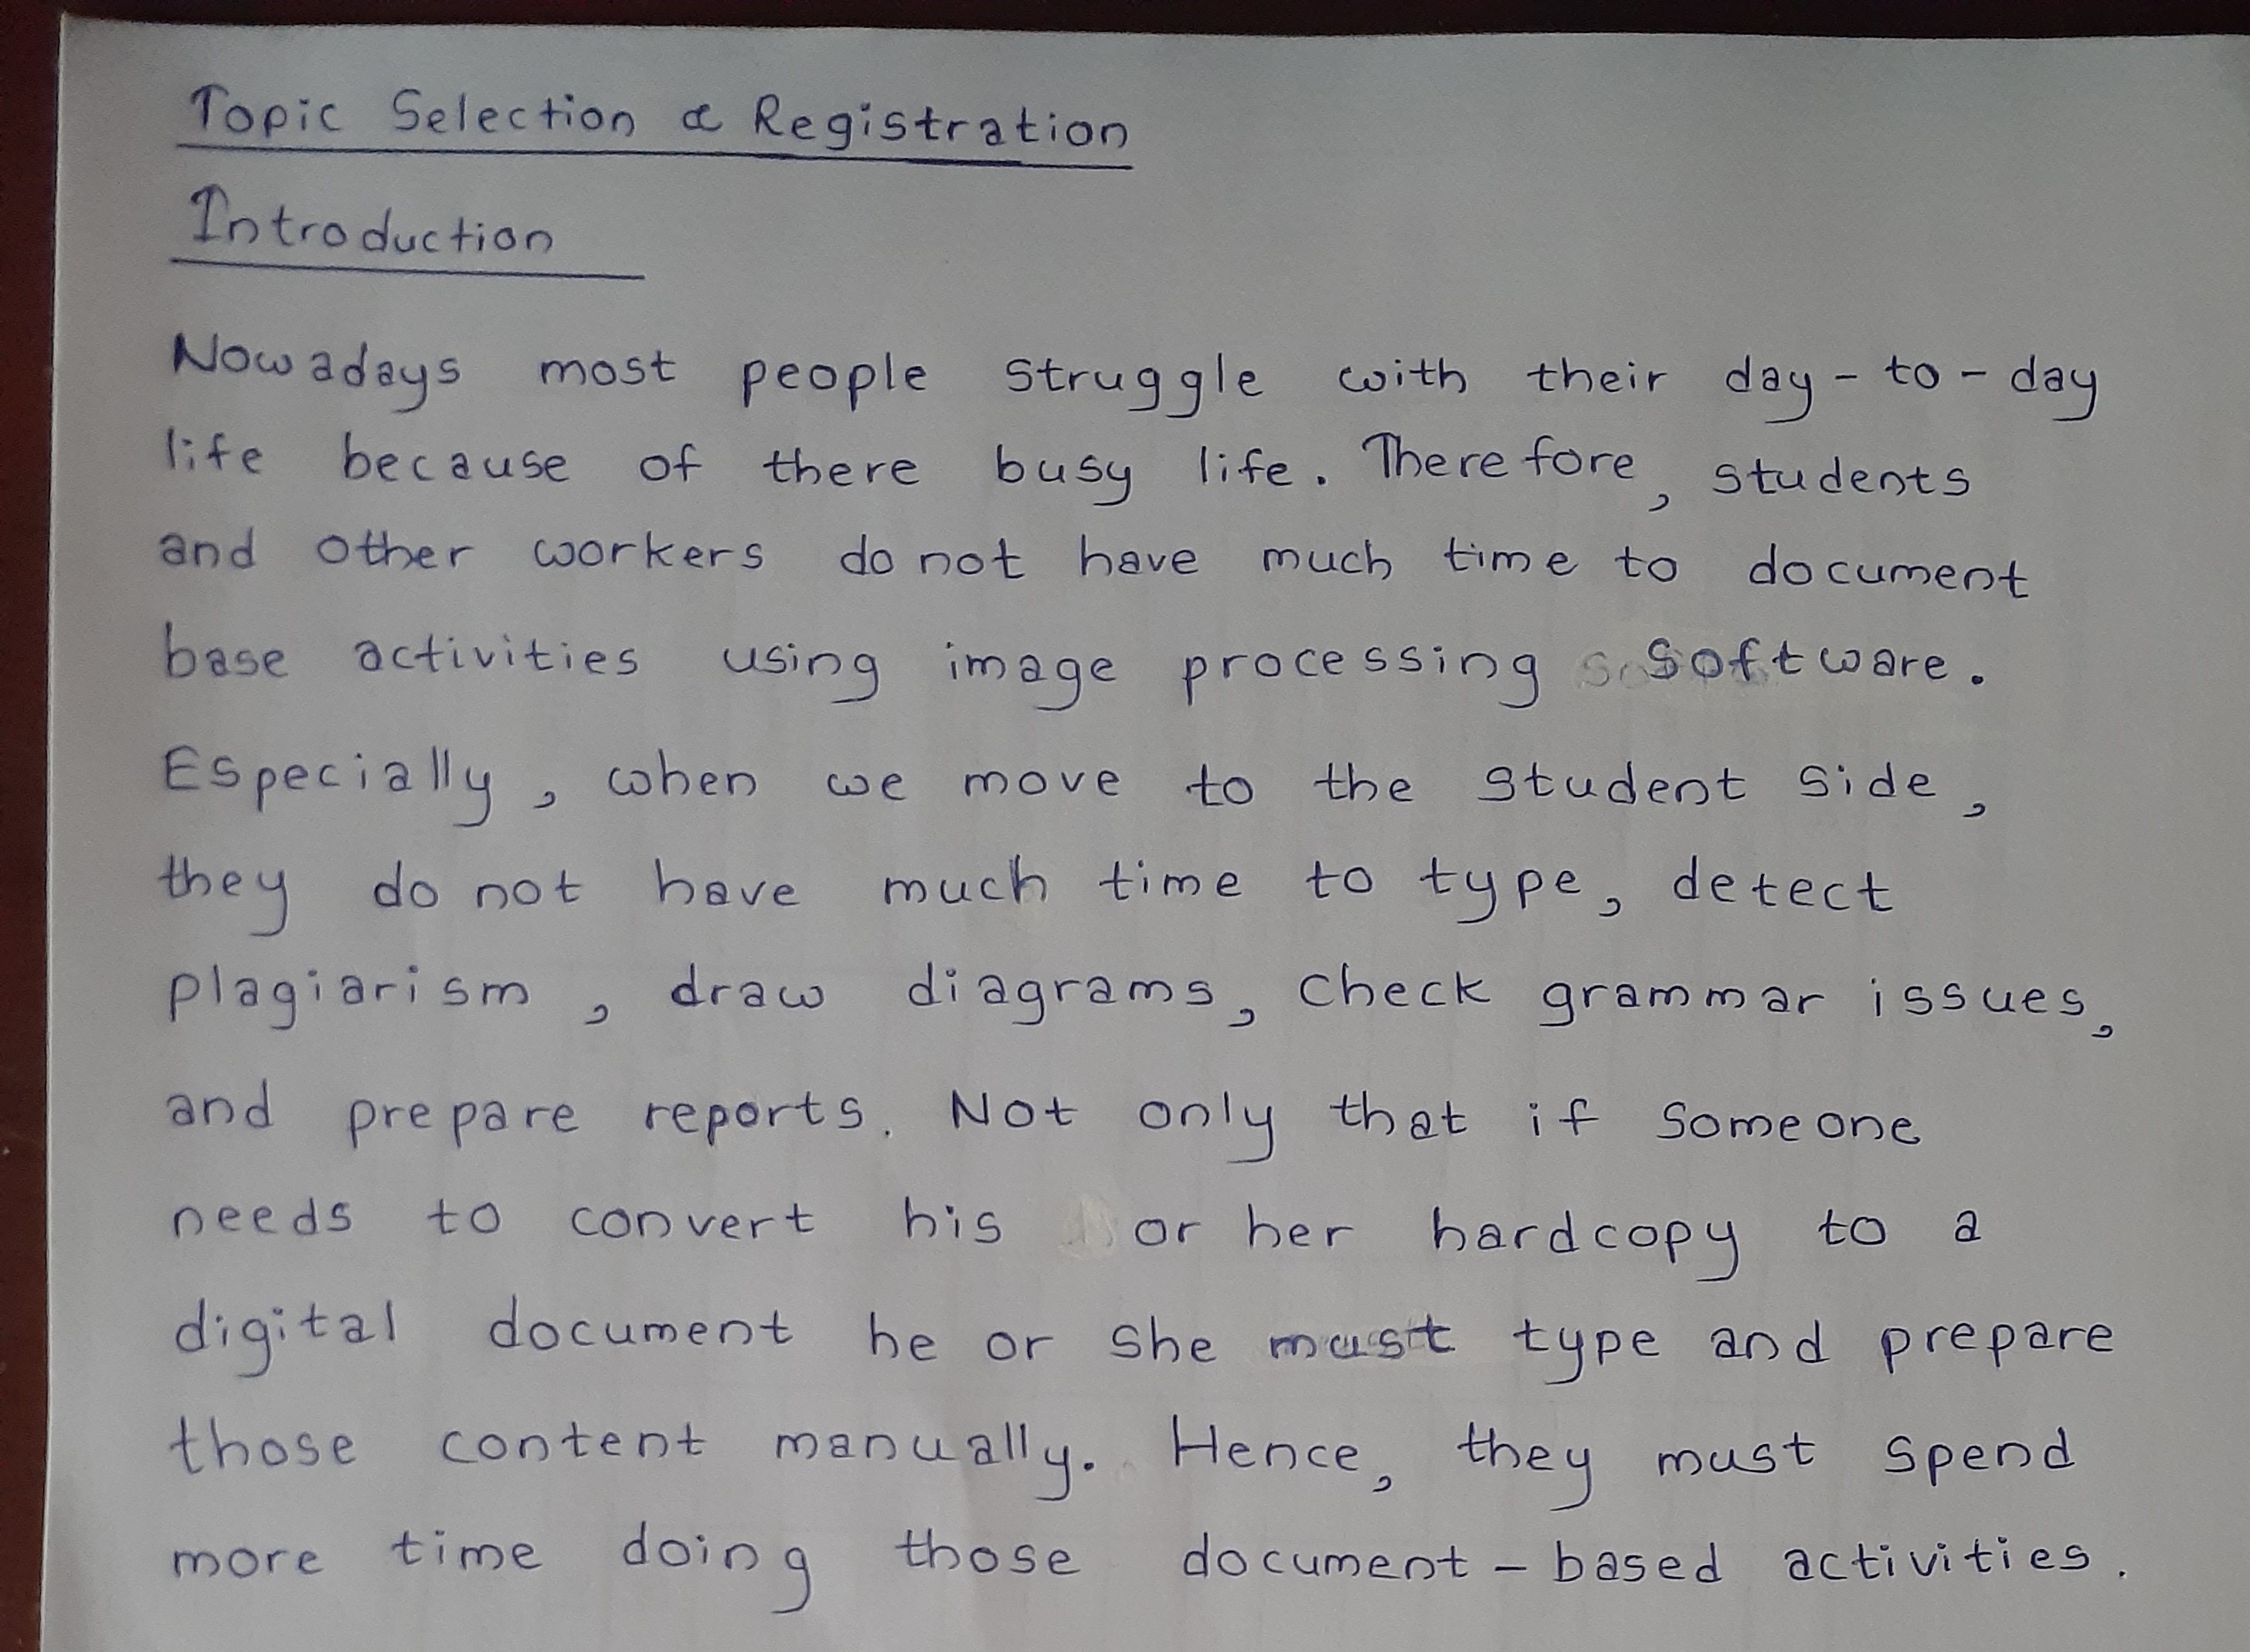 Topic Selection & Registration
Introduction
Nowadays most people struggle with their day-to-day
life because of there busy life. Therefore, students
and other workers do not have much time to document
base activities using image processing software.
Especially, when we move to the student side,
they do not have much time to type, detect
plagiarism, draw diagrams, check grammar issues,
and prepare reports. Not only that if someone
needs to convert his or her hardcopy to a
digital document he or she must type and prepare
those content manually. Hence, they must spend
more time doing those document-based activities.